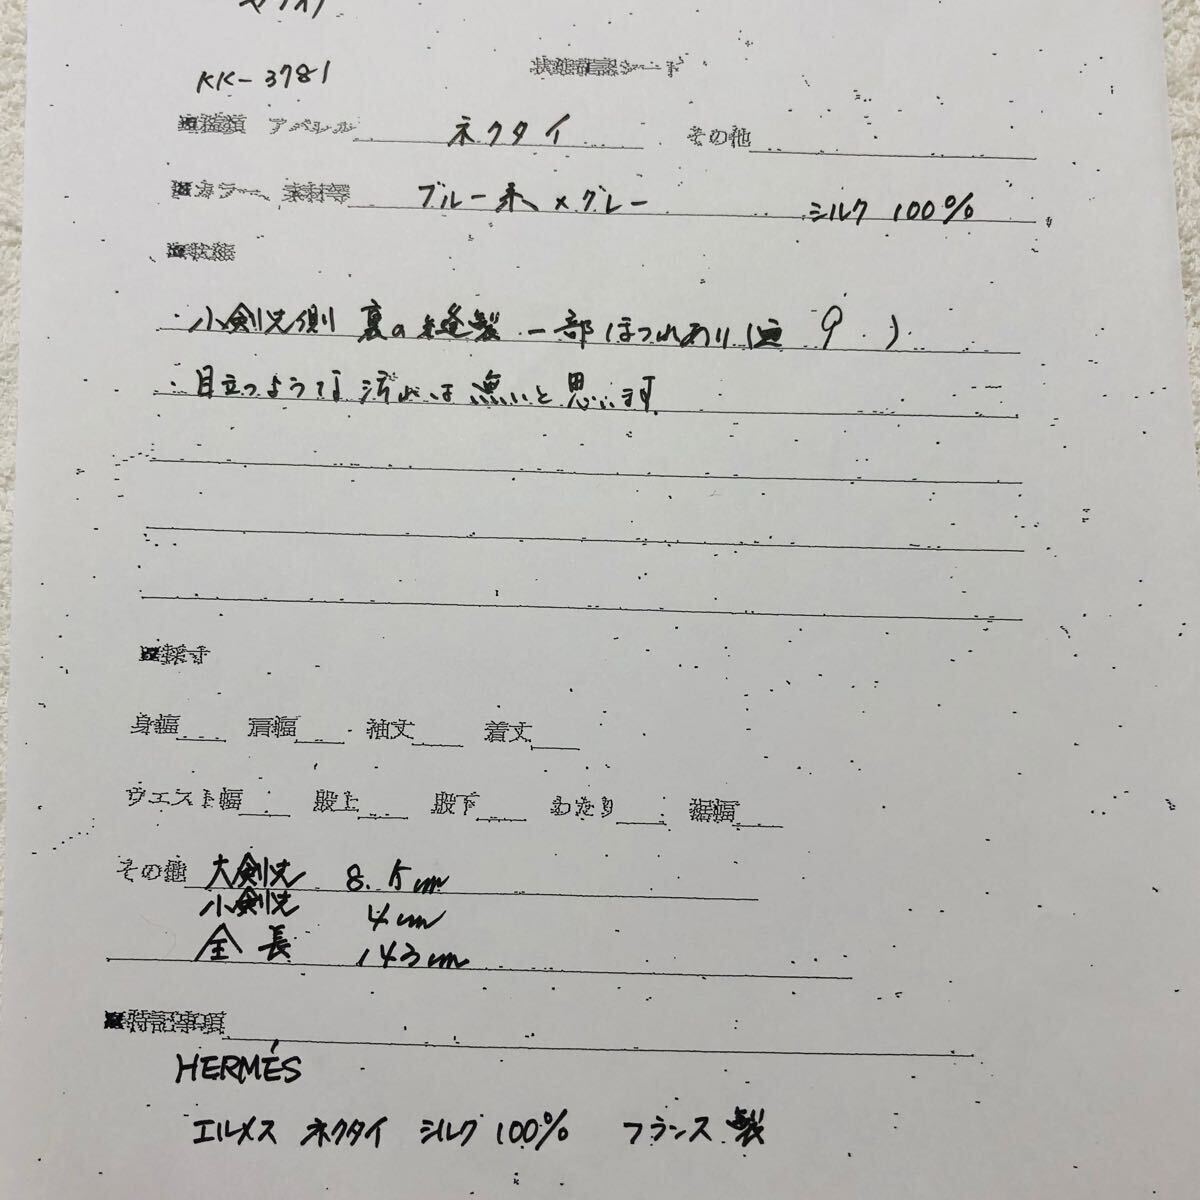 KK-3781
状態確認シート
■種類 アパレル ネクタイ その他
■カラー、素材等 ブルー系×グレー シルク 100%
■状態
・小剣先側 裏の縫製 一部ほつれあり( 9 )
・目立つような汚れは無いと思います
■採寸
身幅 肩幅 袖丈 着丈
ウエスト幅 股上 股下 わたり 裾幅
その他 大剣先 8.5cm
小剣先 4cm
全長 143cm
■特記事項
HERMÉS
エルメス ネクタイ シルク100% フランス製